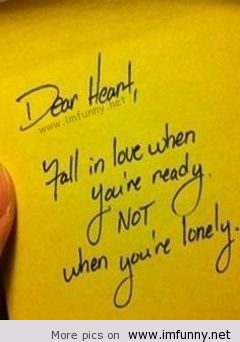 Dear Heart,
www.imfunny.net
Fall in love when
you're ready.
NOT
when you're lonely.
More pics on www.imfunny.net